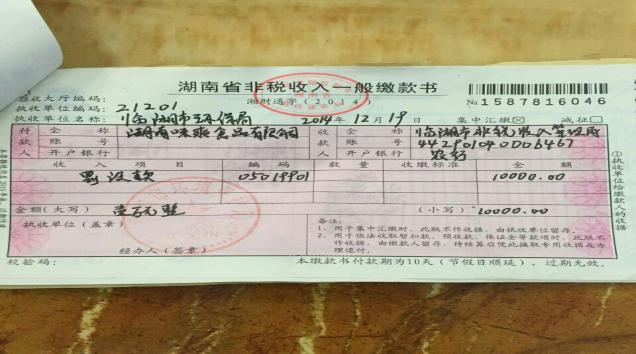 湖南省非税收入一般缴款书
湘财通字(2014)
№ 1587816046
执收大厅编码:
执收单位编码: 21201
执收单位名称: 临湘市环保局 2014年12月19日 集中汇缴☒ 减征□
付款人 全称 湖南有味粮食品有限公司 收款人 全称 临湘市非税收入管理局
账号 账号 442901040006467
开户银行 开户银行 农行
收入项目 编码 数量 收缴标准 金额
罚没款 05019901 10000.00
金额(大写) 壹万元整 (小写) 10000.00
执收单位(盖章)
经办人(签章)
备注:
1、用于集中汇缴时,此联不作收据,由执收单位留存。
2、用于依法收取暂扣款、预收款、保证金等款项时,此联不作收据,由缴款人留存,待结算后凭此换取专用收据或办理退付。
校验码: 本缴款书付款期为10天(节假日顺延),过期无效。
①执收单位给缴款人的收据